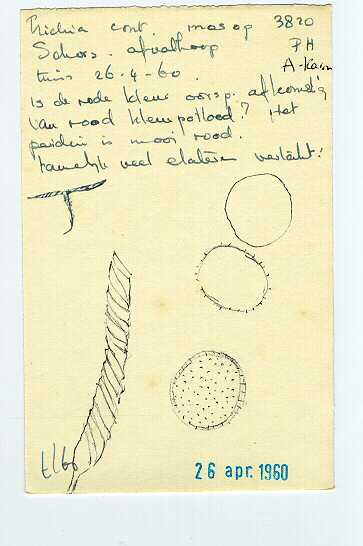 Trichia cont. mos op 3820
Schors. afvalhoop PH
tuin 26-4-60. A-Kain
is de rode kleur oorsp. afkomstig
van rood kleurpotlood? Het
peridium is mooi rood.
tamelijk veel elateren vertakt!
26 apr. 1960